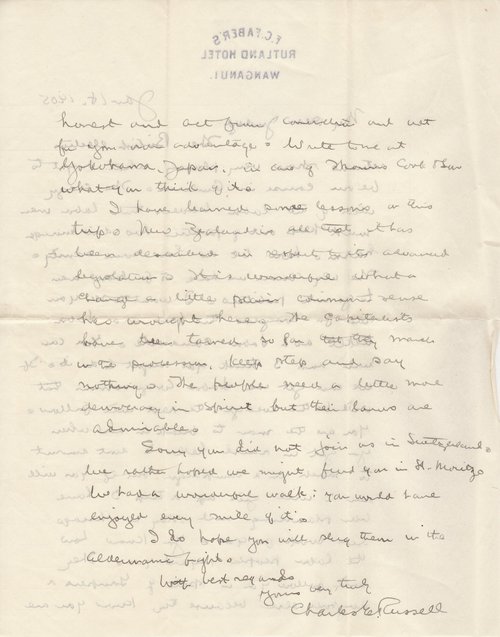 F.C. FABER'S
RUTLAND HOTEL
WANGANUI.
honest and act from conviction and not
for your own advantage. Write to me at
Yokohama, Japan. in care of Thomas Cook & Son
what you think of it.
I have learned some lessons on this
trip. New Zealand is all that it has
been described in respect to its advanced
legislation. It is wonderful what a
change a little plain common sense
has wrought here. The capitalists
have been tamed so far that they march
in the procession, keep step and say
nothing. The people need a little more
democracy in spirit but their laws are
admirable.
Sorry you did not join us in Switzerland.
We rather hoped we might find you in St. Moritz.
We had a wonderful walk; you would have
enjoyed every mile of it.
I do hope you will slug them in the
aldermanic fight.
With best regards
Yours very truly
Charles E. Russell